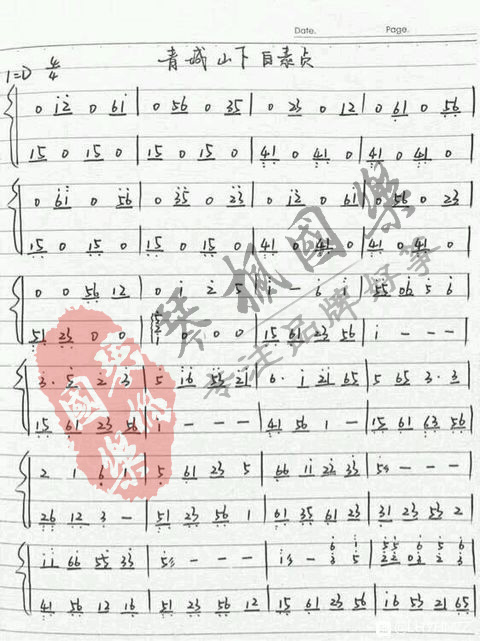 Date. Page.
青城山下白素贞
1=D 4/4
0 12 0 61 | 0 56 0 35 | 0 23 0 12 | 0 61 0 56
15 0 15 0 | 15 0 15 0 | 41 0 41 0 | 41 0 41 0
0 61 0 56 | 0 35 0 23 | 0 12 0 61 | 0 56 0 23
15 0 15 0 | 15 0 15 0 | 41 0 41 0 | 41 0 41 0
0 0 56 12 | 0 1 2 5 | 1 - 6 1 | 55 06 5 6
51 23 0 0 | 0 0 0 | 15 61 23 56 | 1 - - -
3· 5 2 3 | 5 16 53 21 | 6· 1 21 65 | 5 65 3· 3
15 61 23 56 | 1 - - - | 41 56 1 - | 15 61 63 56
2 1 6 | 5 61 23 5 | 66 11 23 33 | 5 - - -
26 12 3 - | 51 23 56 1 | 61 35 61 23 | 31 23 53 2
11 66 55 33 | 5 - - - | 1 -
41 56 12 16 | 51 23 56 12 | 15 61 23 56 | 16 53 21 65
琴枫國樂
专注品牌好筝
琴枫國樂